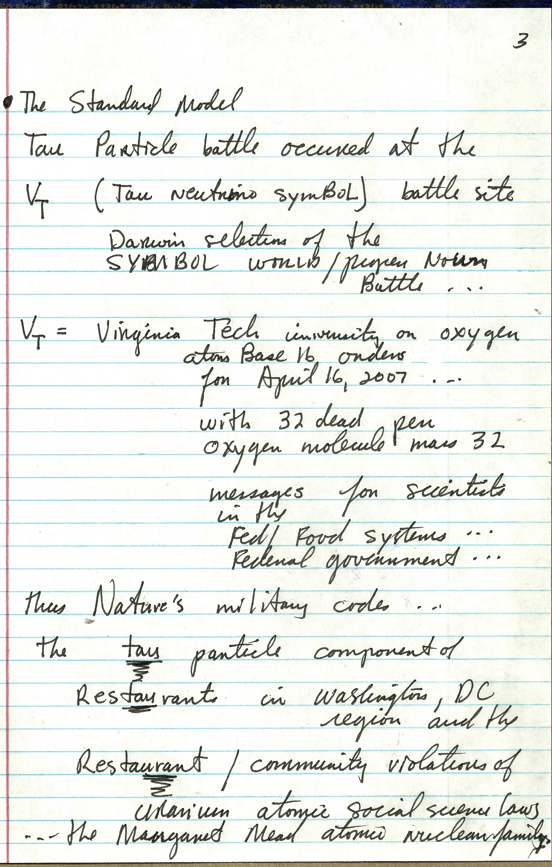 3
• The Standard Model
Tau Particle battle occured at the
VT (Tau neutrino symBOL) battle site
Darwin selection of the
SYMBOL WORLD/proper Noun
Battle ...
VT = Virginia Tech university on oxygen
atom Base 16 orders
for April 16, 2007 ...
with 32 dead per
oxygen molecule mass 32
messages for scientists
in the
Fed/Food systems ...
Federal government ...
thus Nature's military codes ...
the tau particle component of
Restaurants in Washington, DC
region and the
Restaurant / community violations of
uranium atomic social science laws
... the Margaret Mead atomic nuclear family